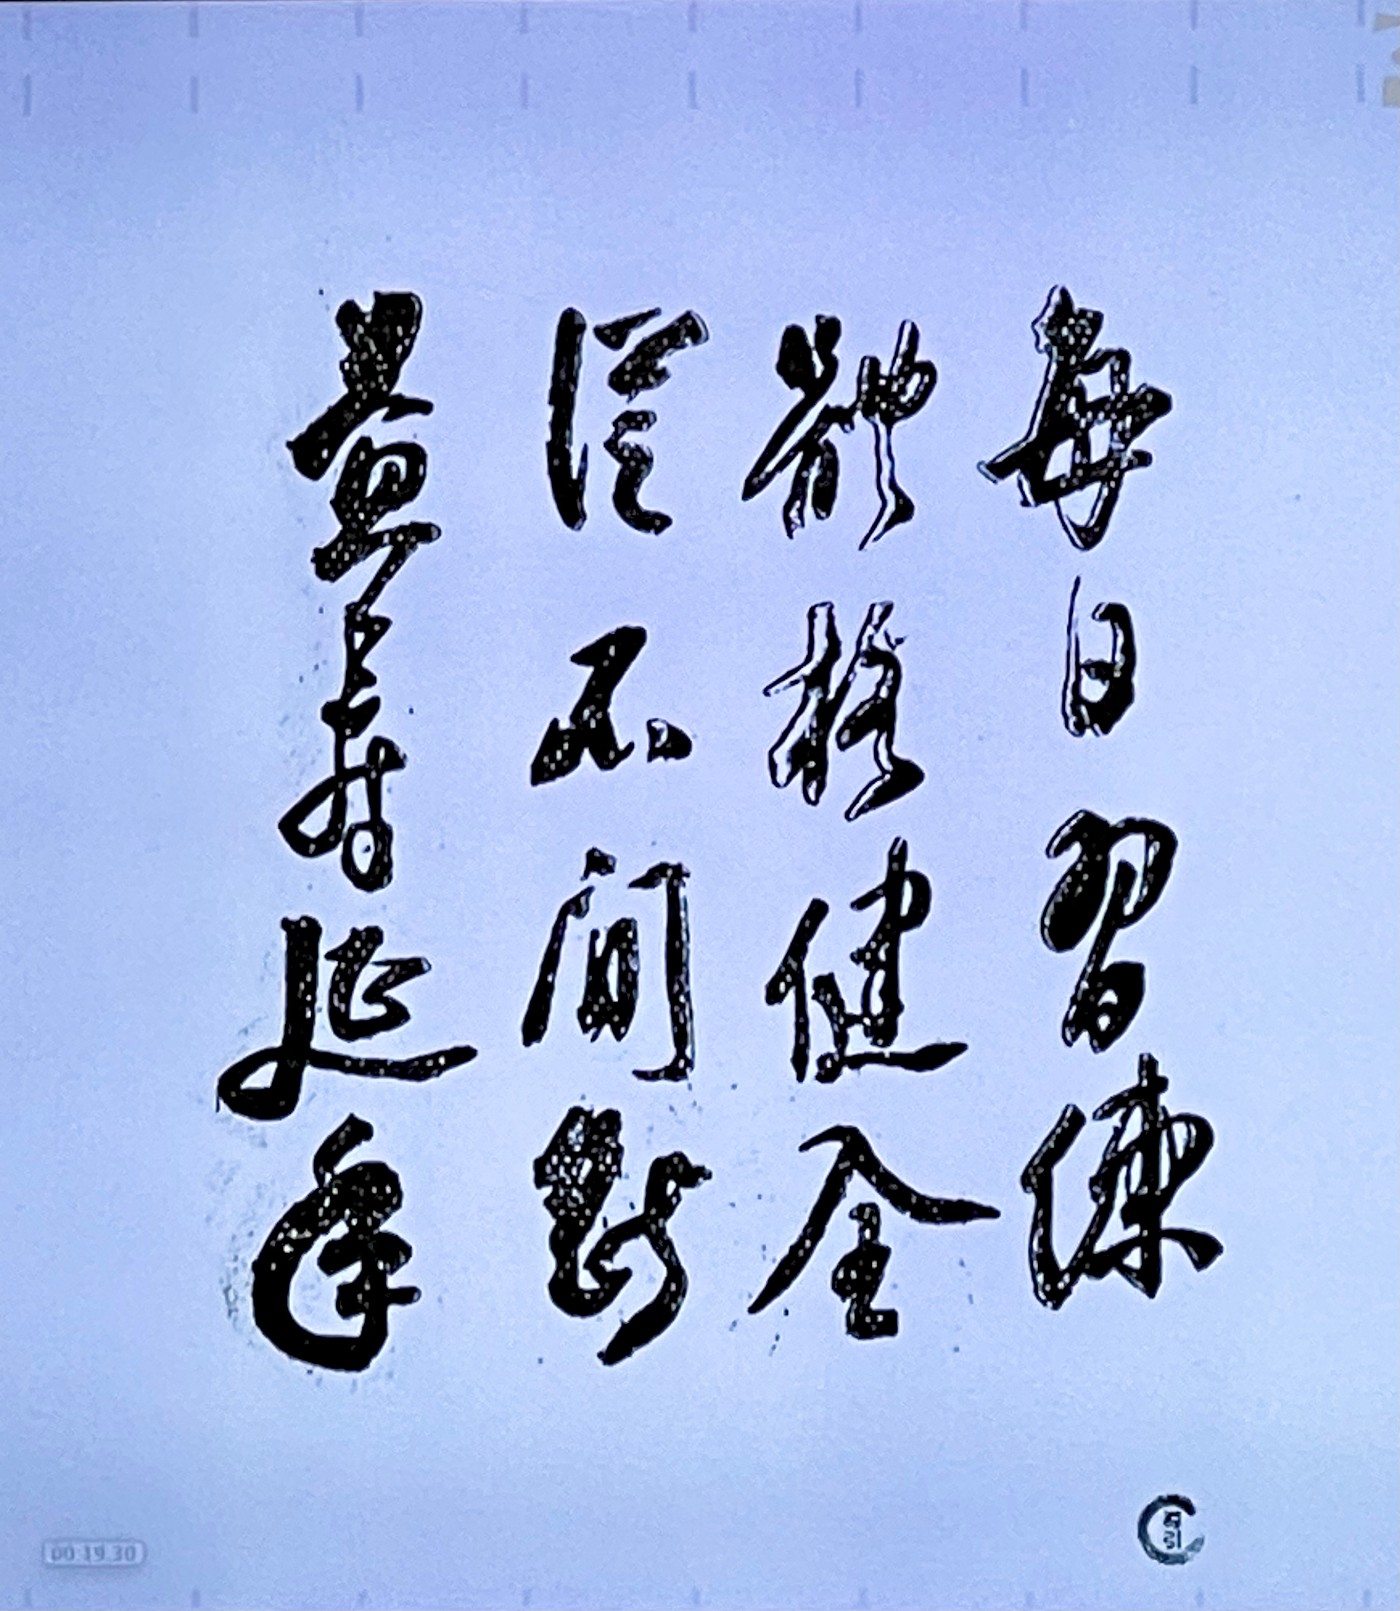 每日習練
體格健全
從不間斷
益壽延年
00:19.30